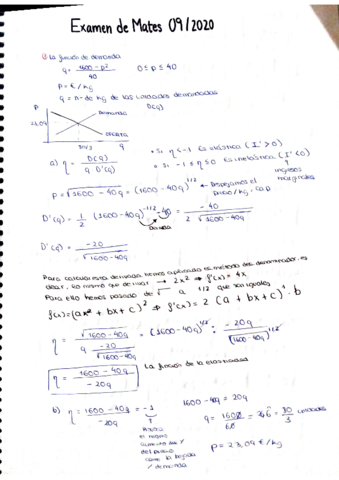 Examen de Mates 09/2020
① La función de demanda
q = 1600 - p² / 40    0 ≤ p ≤ 40
p = € / kg
q = n- de kg de las unidades demandadas
D(q)
P
Demanda
23,09
OFERTA
q
• Si η < -1 Es elástica (I' > 0)
• Si -1 ≤ η ≤ 0 Es inelástica (I' < 0)
ingresos
marginales
a) η = D(q) / q D'(q)
p = √1600 - 40q = (1600 - 40q)^1/2 ← Despejamos el
precio / kg, con p
D'(q) = 1/2 (1600 - 40q)^-1/2 · -40 = -40 / 2 √1600 - 40q
Derivada
D'(q) = -20 / √1600 - 40q
Para calcular esta derivada hemos aplicado el método del denominador, es
decir, lo mismo que derivar → 2x² ⇒ f'(x) = 4x
Para ello hemos pasado de √ a 1/2 que son iguales
f(x) = (ax² + bx + c)² ⇒ f'(x) = 2 (a + bx + c)¹ · b
η = √1600 - 40q / q -20 / √1600 - 40q = (1600 - 40q)^1/2 : -20q / (1600 - 40q)^1/2
η = 1600 - 40q / -20q
La función de la elasticidad
b) η = 1600 - 40q / -20q = -1
1600 - 40q = 20q
q = 1600 / 60 = 26,6 = 80 / 3 unidades
p = 23,09 € / kg
el negocio
del precio
como la bajada
/ demanda